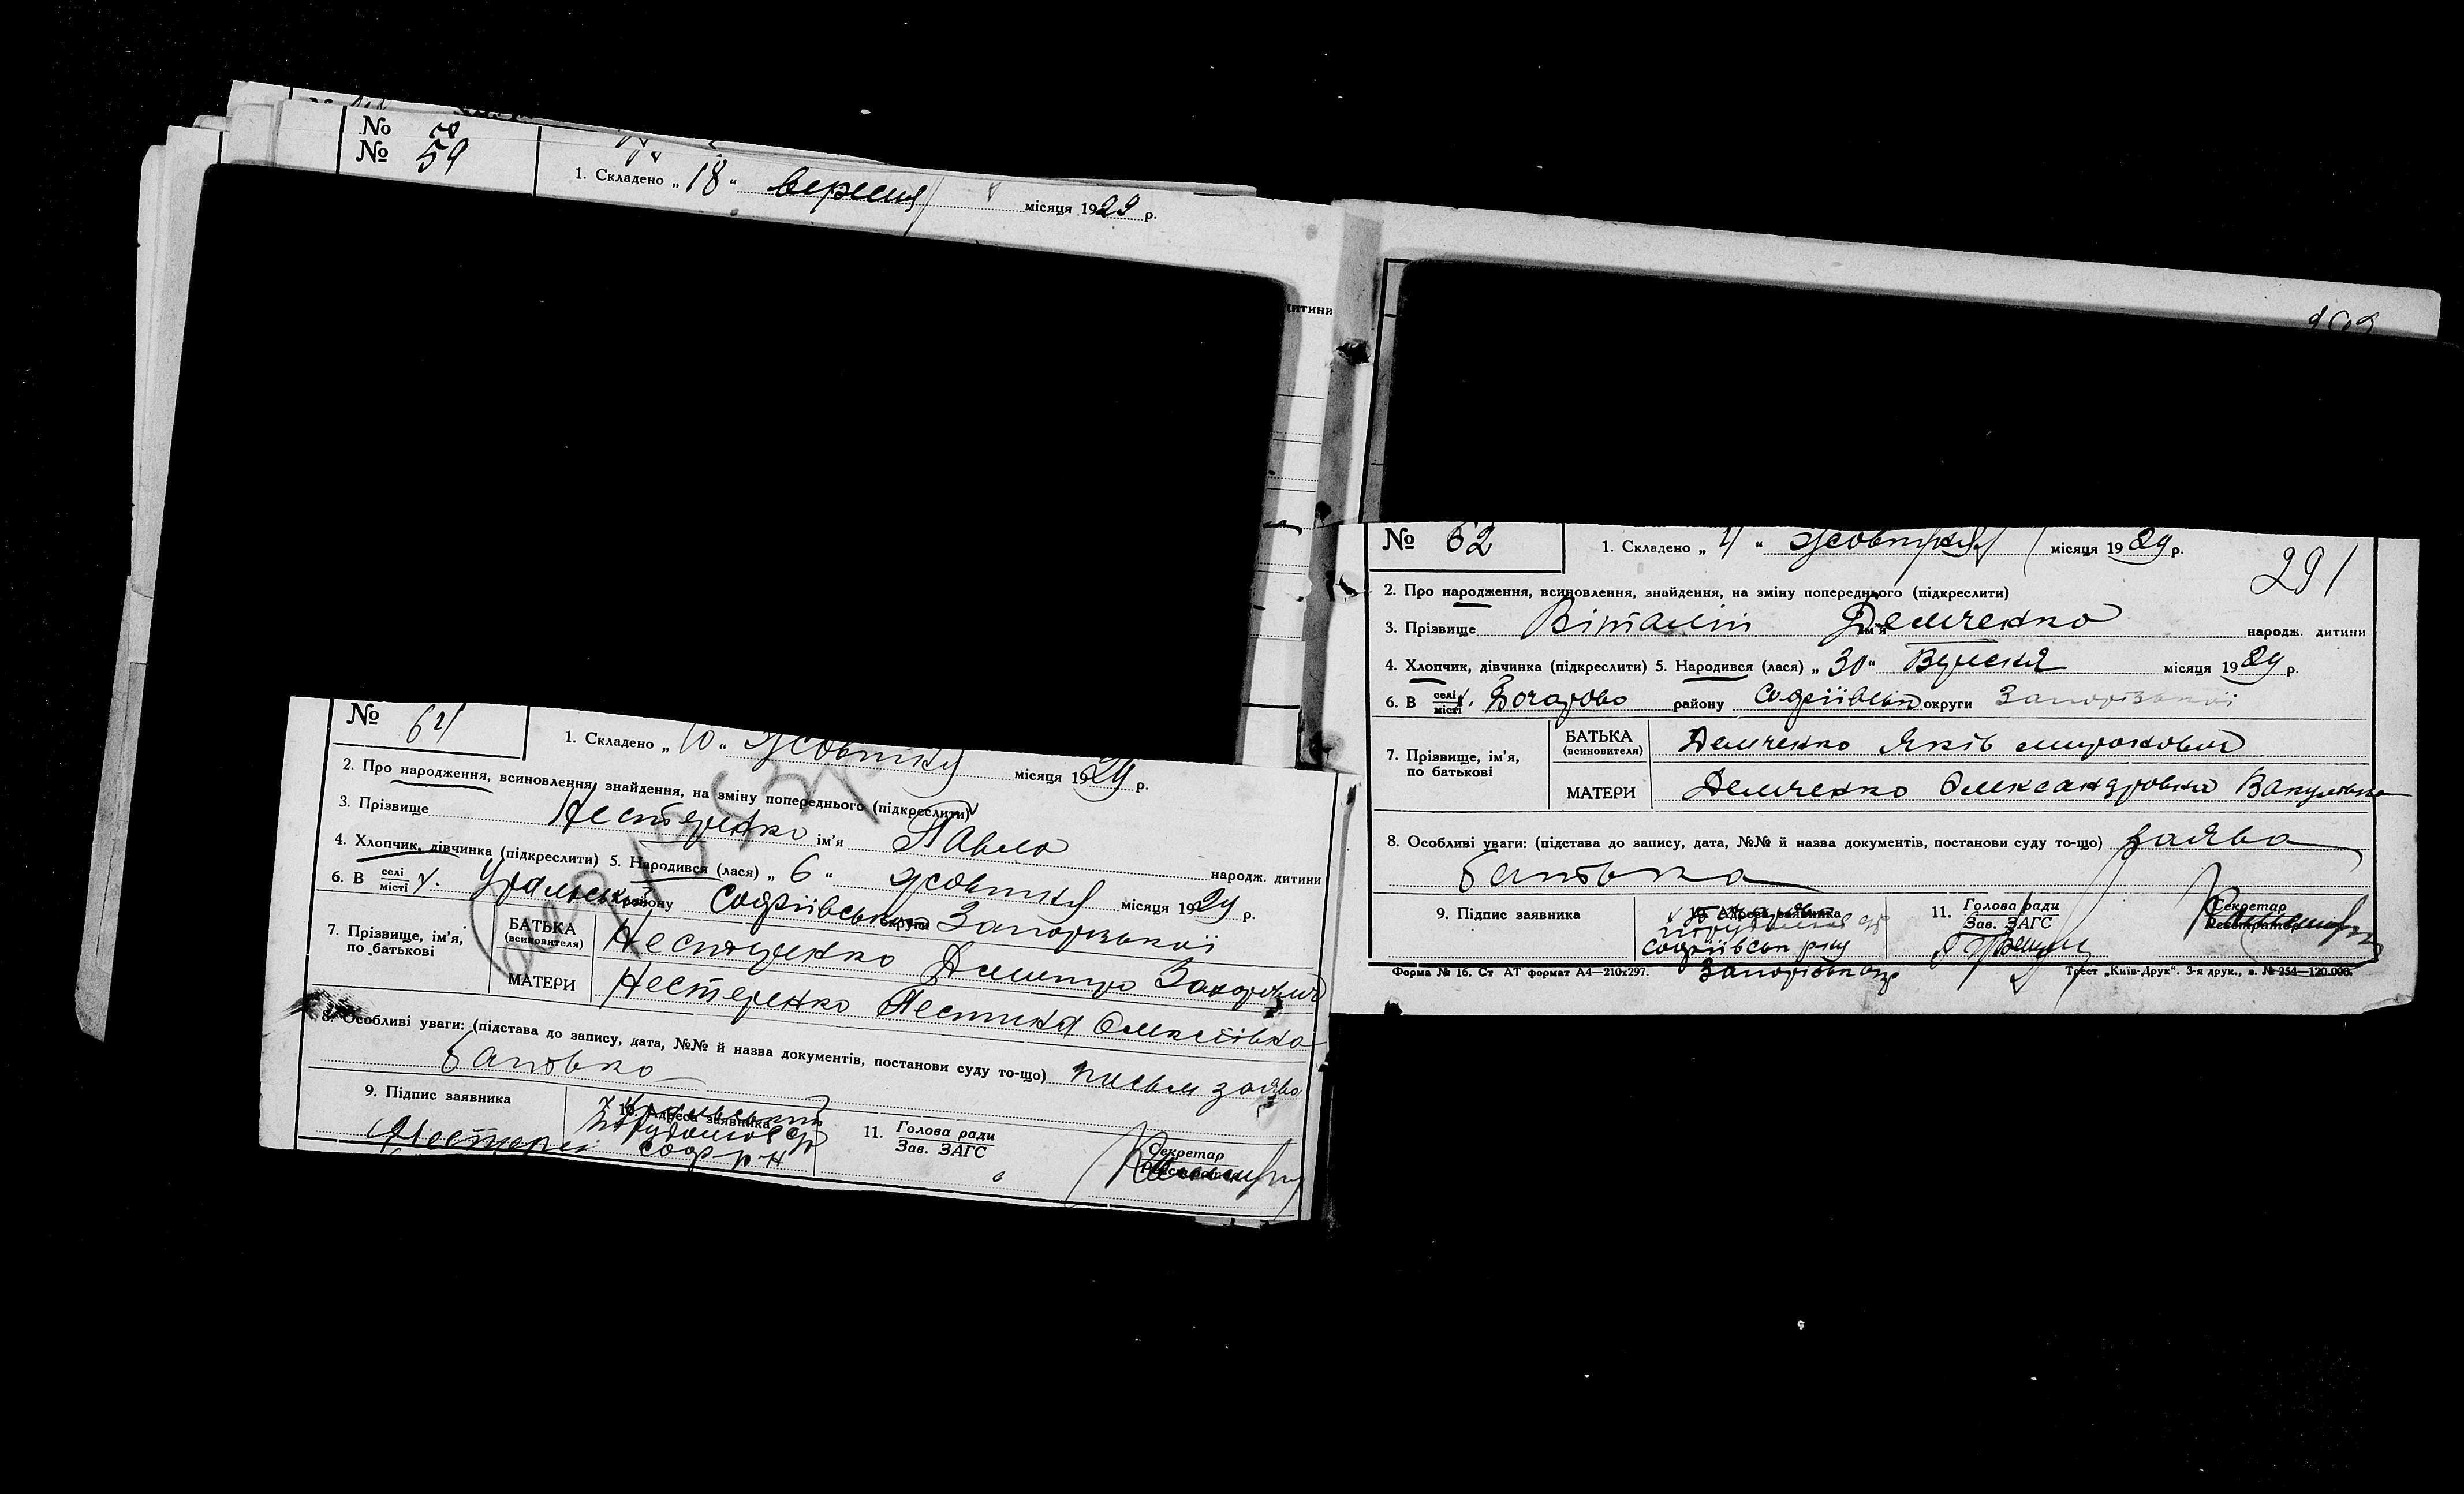 № 58
№ 59
1. Складено „ 18 “ вересня місяця 1929 р.
дитини
№ 61
1. Складено „ 10 “ жовтня місяця 1929 р.
2. Про народження, всиновлення, знайдення, на зміну попереднього (підкреслити)
3. Прізвище Нестеренко ім'я Павло народж. дитини
4. Хлопчик, дівчинка (підкреслити) 5. Народився (лася) „ 6 “ жовтня місяця 1929 р.
6. В селі/місті х. Уральський району Софіївськ округи Запорізької
7. Прізвище, ім'я, по батькові
БАТЬКА (всиновителя) Нестеренко Дмитро
МАТЕРИ Нестеренко Олексіївна
8. Особливі уваги: (підстава до запису, дата, №№ й назва документів, постанови суду то-що) письм заява
батька
9. Підпис заявника
10. Адреса заявника
Соф р-н
11. Голова ради
Зав. ЗАГС
Секретар
Реєстратор
№ 62
1. Складено „ “ жовтня місяця 1929 р.
291
2. Про народження, всиновлення, знайдення, на зміну попереднього (підкреслити)
3. Прізвище Віталій ім'я Демченко народж. дитини
4. Хлопчик, дівчинка (підкреслити) 5. Народився (лася) „ 30 “ Вересня місяця 1929 р.
6. В селі/місті х. району Софіївськ округи Запорізької
7. Прізвище, ім'я, по батькові
БАТЬКА (всиновителя) Демченко Яків миронович
МАТЕРИ Демченко Олександровна Вакуловна
8. Особливі уваги: (підстава до запису, дата, №№ й назва документів, постанови суду то-що) заява
батька
9. Підпис заявника
10. Адреса заявника
Софіївськ р-ну
11. Голова ради
Зав. ЗАГС
Секретар
Реєстратор
Форма № 16. Ст АТ формат А4—210x297.
Трест „Київ-Друк“. 3-я друк., з. № 254—120.000.